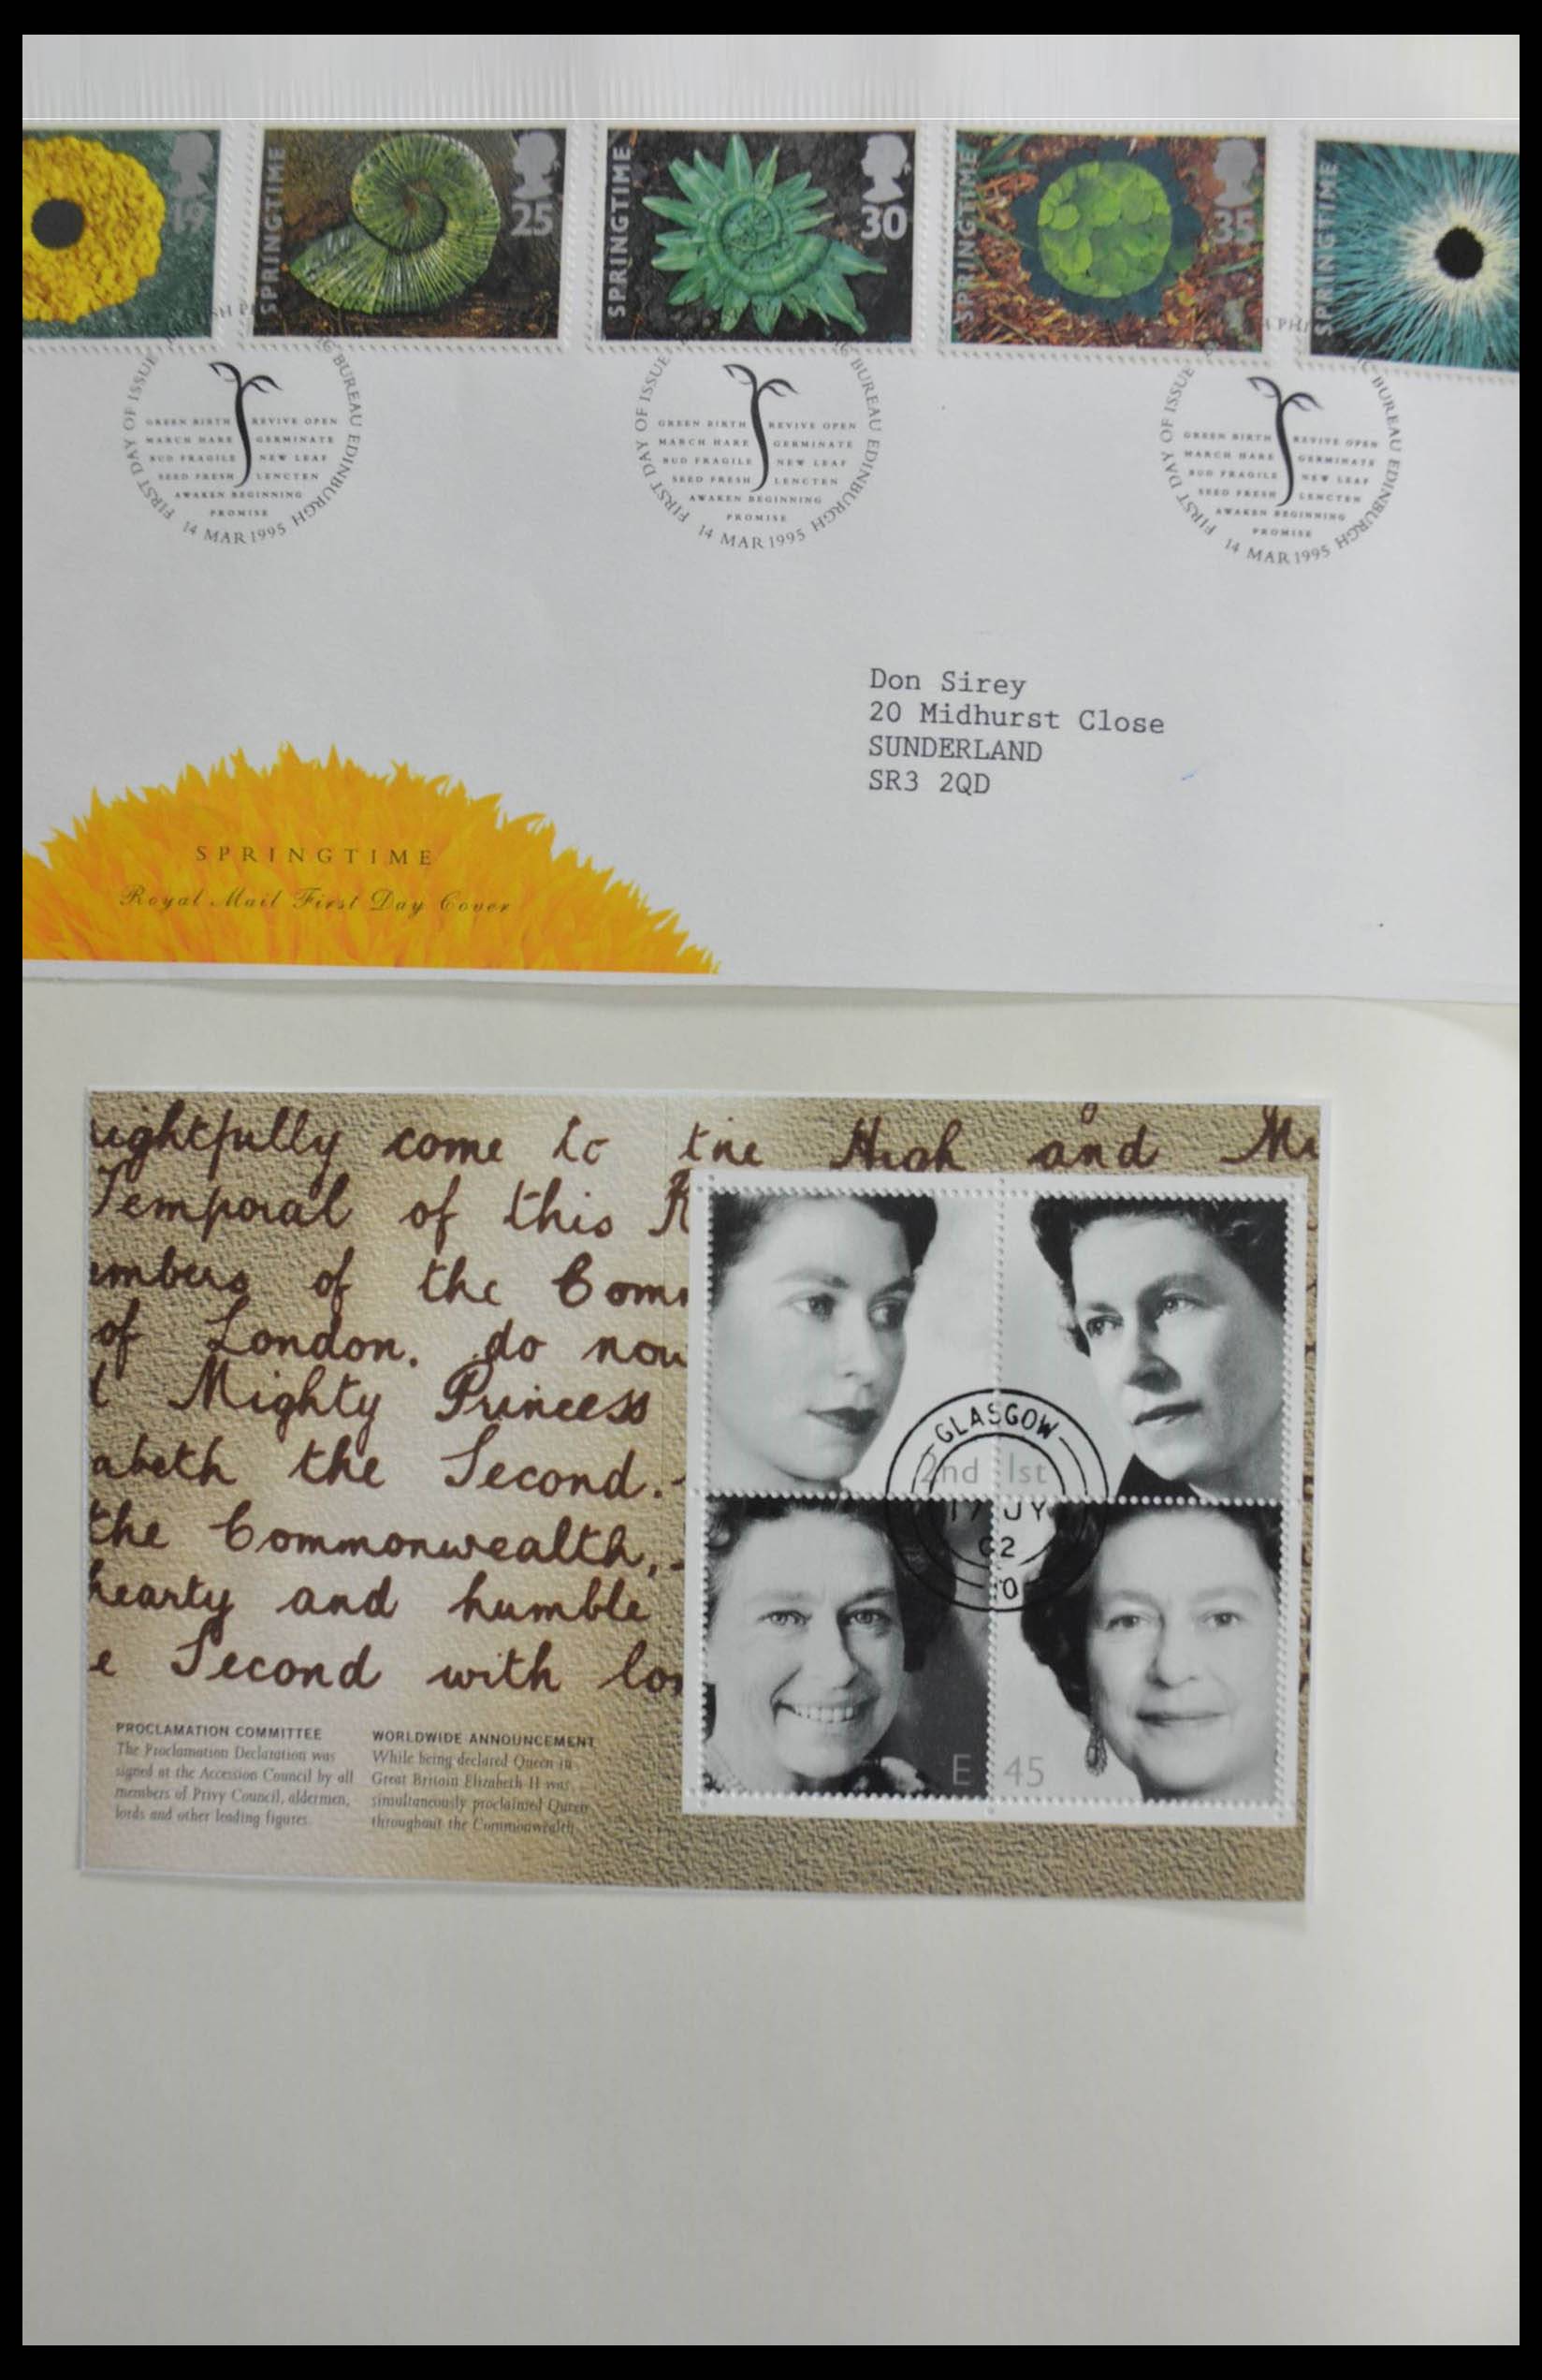 19
SPRINGTIME 25
SPRINGTIME 30
SPRINGTIME 35
SPRINGTIME
FIRST DAY OF ISSUE BUREAU EDINBURGH
GREEN BIRTH REVIVE OPEN
MARCH HARE GERMINATE
BUD FRAGILE NEW LEAF
SEED FRESH LENCTEN
AWAKEN BEGINNING
PROMISE
14 MAR 1995
FIRST DAY OF ISSUE BUREAU EDINBURGH
GREEN BIRTH REVIVE OPEN
MARCH HARE GERMINATE
BUD FRAGILE NEW LEAF
SEED FRESH LENCTEN
AWAKEN BEGINNING
PROMISE
14 MAR 1995
FIRST DAY OF ISSUE BUREAU EDINBURGH
GREEN BIRTH REVIVE OPEN
MARCH HARE GERMINATE
BUD FRAGILE NEW LEAF
SEED FRESH LENCTEN
AWAKEN BEGINNING
PROMISE
14 MAR 1995
Don Sirey
20 Midhurst Close
SUNDERLAND
SR3 2QD
SPRINGTIME
Royal Mail First Day Cover
ightfully come to the High and Mi
Temporal of this R
embers of the Com
of London, do now
t Mighty Princess
abeth the Second.
the Commonwealth,
hearty and humble
e Second with lo
PROCLAMATION COMMITTEE
The Proclamation Declaration was
signed at the Accession Council by all
members of Privy Council, aldermen,
lords and other leading figures
WORLDWIDE ANNOUNCEMENT
While being declared Queen in
Great Britain Elizabeth II was
simultaneously proclaimed Queen
throughout the Commonwealth
2nd 1st
GLASGOW
JY
02
E 45